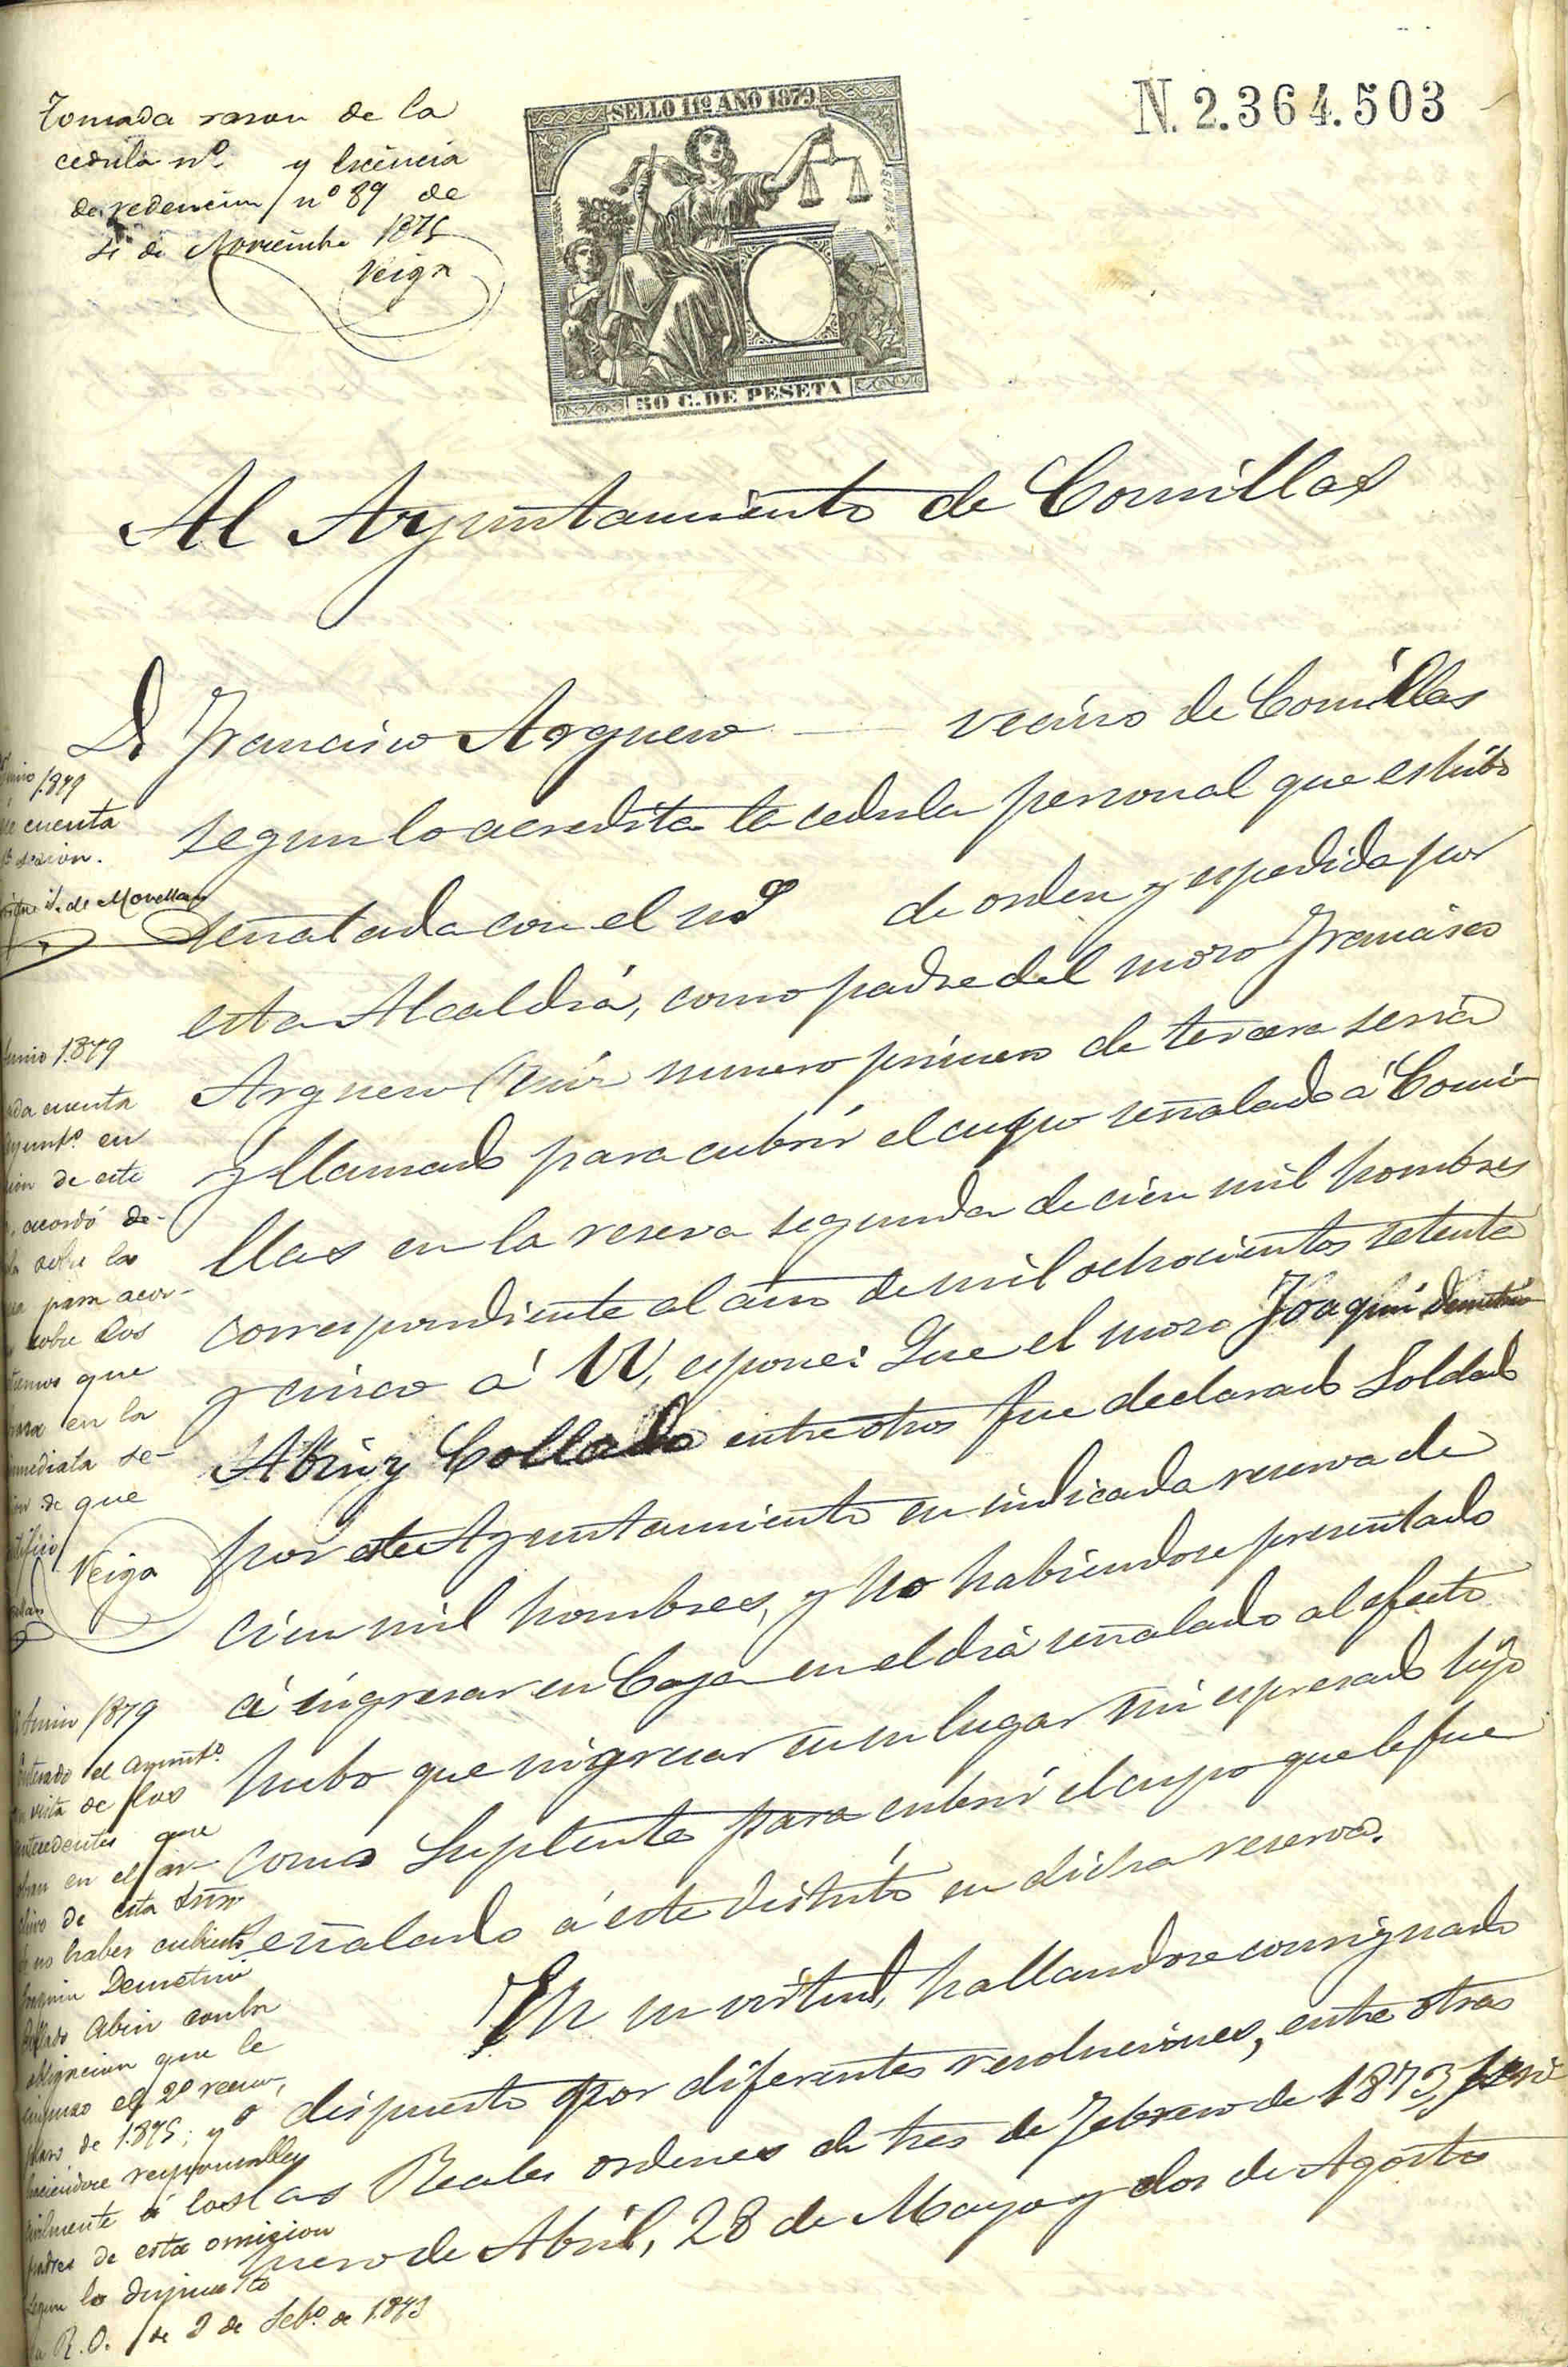 Tomada razon de la
cedula nº y licencia
de redencion nº 89 de
4 de Noviembre 1875
Veiga
SELLO 11º AÑO 1879
50 C. DE PESETA
N. 2.364.503
Al Ayuntamiento de Comillas
D Francisco Arguero vecino de Comillas
segun lo acredita la cedula personal que exhibo
señalada con el nº de orden y espedida por
esta Alcaldia, como padre del mozo Francisco
Arguero numero primero de tercera seria
y llamado para cubrir el cupo señalado á Comi-
llas en la reserva segunda de cien mil hombres
correspondiente al año de mil ochocientos setenta
y cinco á VV, espone: Que el mozo Joaquin Demetrio
Abin y Collado entre otros fue declarado Soldado
por este Ayuntamiento en indicada reserva de
cien mil hombres, y no habiendose presentado
á ingresar en Caja en el dia señalado al efecto
hubo que ingresar en su lugar mi espresado hijo
como Suplente para cubrir el cupo que le fue
señalado á este distrito en dicha reserva.
En su virtud, hallandose consignado
y dispuesto por diferentes resoluciones, entre otras
las Reales ordenes de tres de Febrero de 1873,
mero de Abril, 28 de Mayo y dos de Agosto
1879
cuenta
sesion.
de Movellan
Junio 1879
cuenta
Ayuntº en
de este
acordó
sobre la
para acor-
sobre los
que
en la
inmediata se-
de que
Veiga
Junio 1879
Enterado el Ayuntº
en vista de los
antecedentes que
obran en el ar-
chivo de esta
de no haber cubierto
Joaquin Demetrio
Collado Abin con la
obligacion que le
impuso el 2º reem-
plazo de 1875; y
haciendose responsables
civilmente á los
padres de esta omision
segun lo dispuesto
R. O. de 3 de Febº de 1873